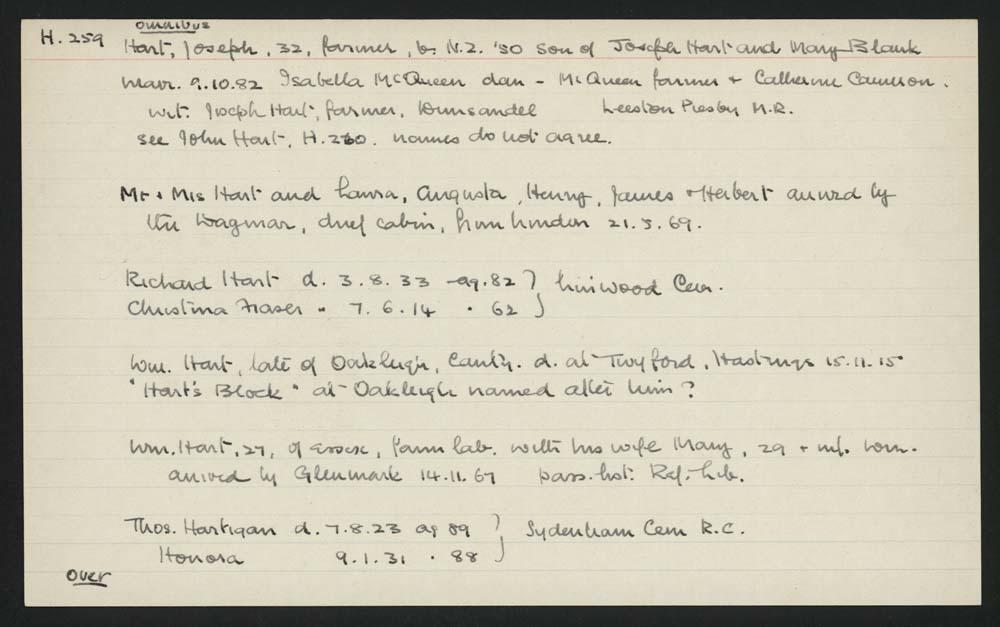 omnibus
H.259
Hart, Joseph, 32, farmer, b. N.Z. '50 son of Joseph Hart and Mary Blank
marr. 9.10.82 Isabella McQueen dau - McQueen farmer + Catherine Cameron.
wit: Joseph Hart, farmer, Dunsandel Leeston Presby M.R.
see John Hart, H.260. names do not agree.
Mr + Mrs Hart and Laura, Augusta, Henry, James + Herbert arrived by
the Dagmar, chief cabin, from London 21.3.69.
Richard Hart d. 3.8.33 ag. 82 } Linwood Cem.
Christina Fraser " 7.6.14 " 62
Wm. Hart, late of Oakleigh, Canty. d. at Twyford, Hastings 15.11.15
"Hart's Block" at Oakleigh named after him?
Wm. Hart, 27, of Essex, farm lab. with his wife Mary, 29 + inf. Wm.
arrived by Glenmark 14.11.67 pass. list. Ref. Lib.
Thos. Hartigan d. 7.8.23 ag 89 } Sydenham Cem R.C.
Honora 9.1.31 " 88
over